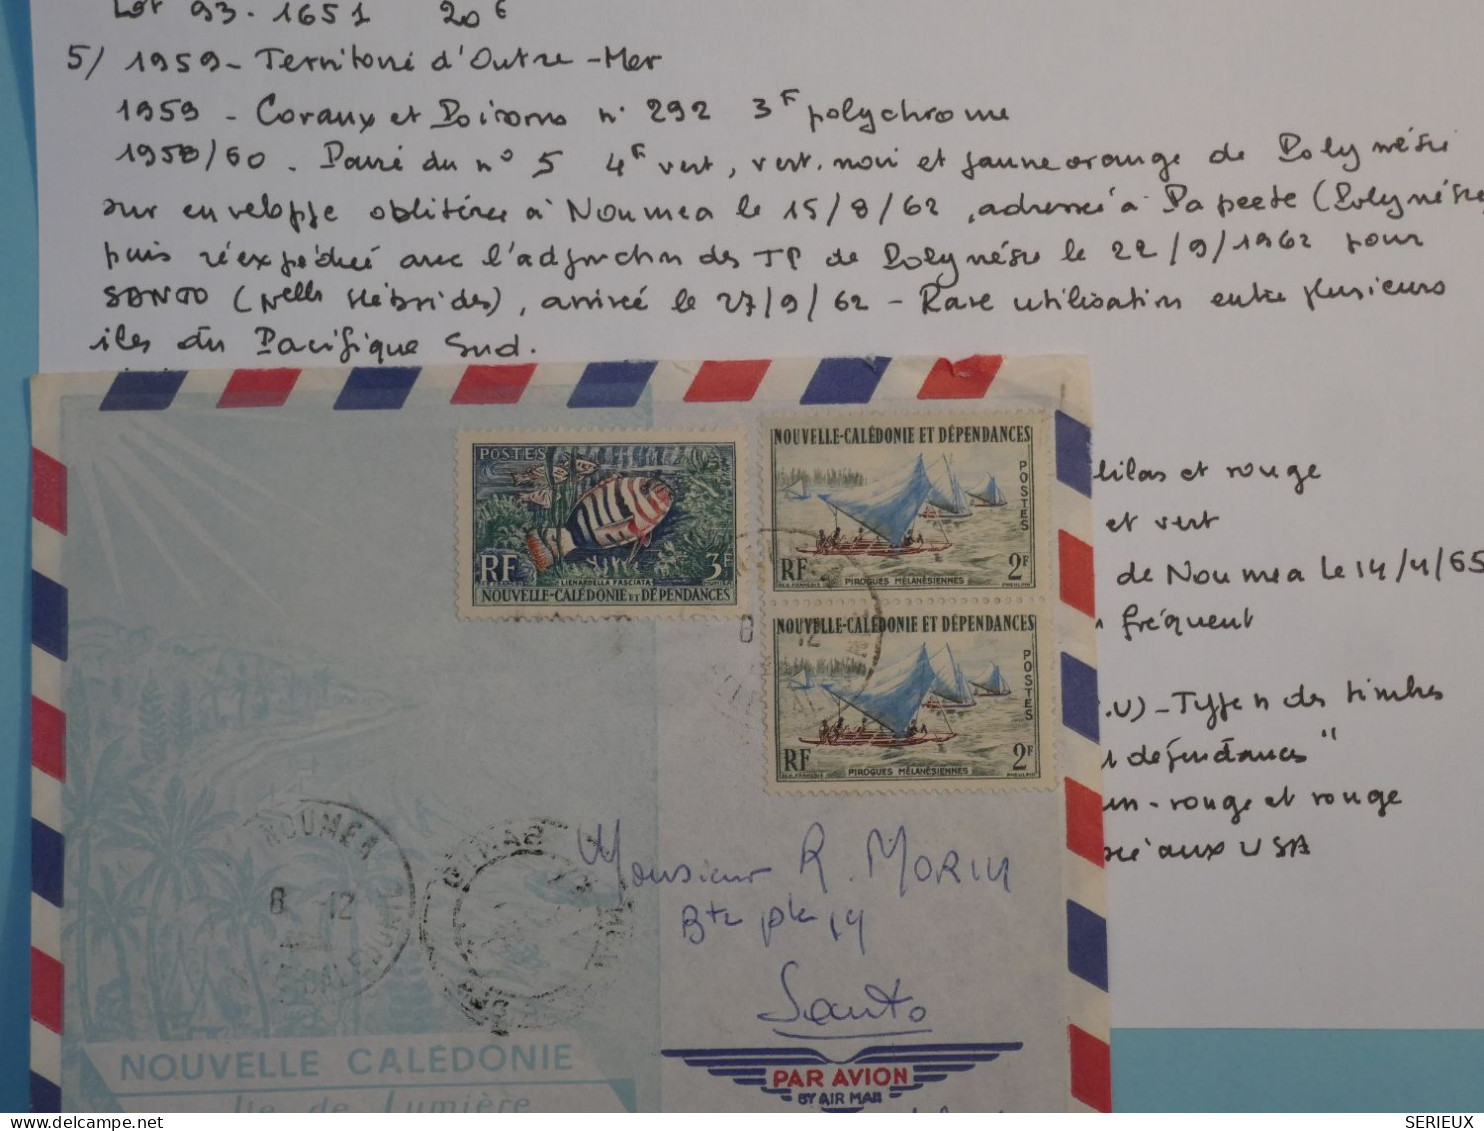 Lot 93-1651 20€
5/ 1959 - Territoire d'Outre-Mer
1959 - Coraux et Poissons n° 292 3F polychrome
1958/60 - Paire du n° 5 4F vert, vert-noir et jaune orange de Polynésie
sur enveloppe oblitérée à Noumea le 15/8/62, adressée à Papeete (Polynésie
puis réexpédiée avec l'adjonction des TP de Polynésie le 22/9/1962 pour
SANTO (Nelles Hébrides), arrivée le 27/9/62 - Rare utilisation entre plusieurs
îles du Pacifique Sud.
lilas et rouge
et vert
de Noumea le 14/4/65
fréquent
.U) - Type n des timbres
dépendances"
un-rouge et rouge
aux USA
POSTES
RF
3F
LIENARDELLA FASCIATA
NOUVELLE-CALÉDONIE ET DÉPENDANCES
NOUVELLE-CALÉDONIE ET DÉPENDANCES
POSTES
RF
2F
PIROGUES MÉLANÉSIENNES
PHEULPIN
8 12
NOUVELLE-CALÉDONIE ET DÉPENDANCES
POSTES
RF
2F
PIROGUES MÉLANÉSIENNES
PHEULPIN
NOUMEA
8 -12
Monsieur R. MORIN
Bte ple 14
Santo
PAR AVION
BY AIR MAIL
NOUVELLE CALÉDONIE
Ile de Lumière
delcampe.net
SERIEUX